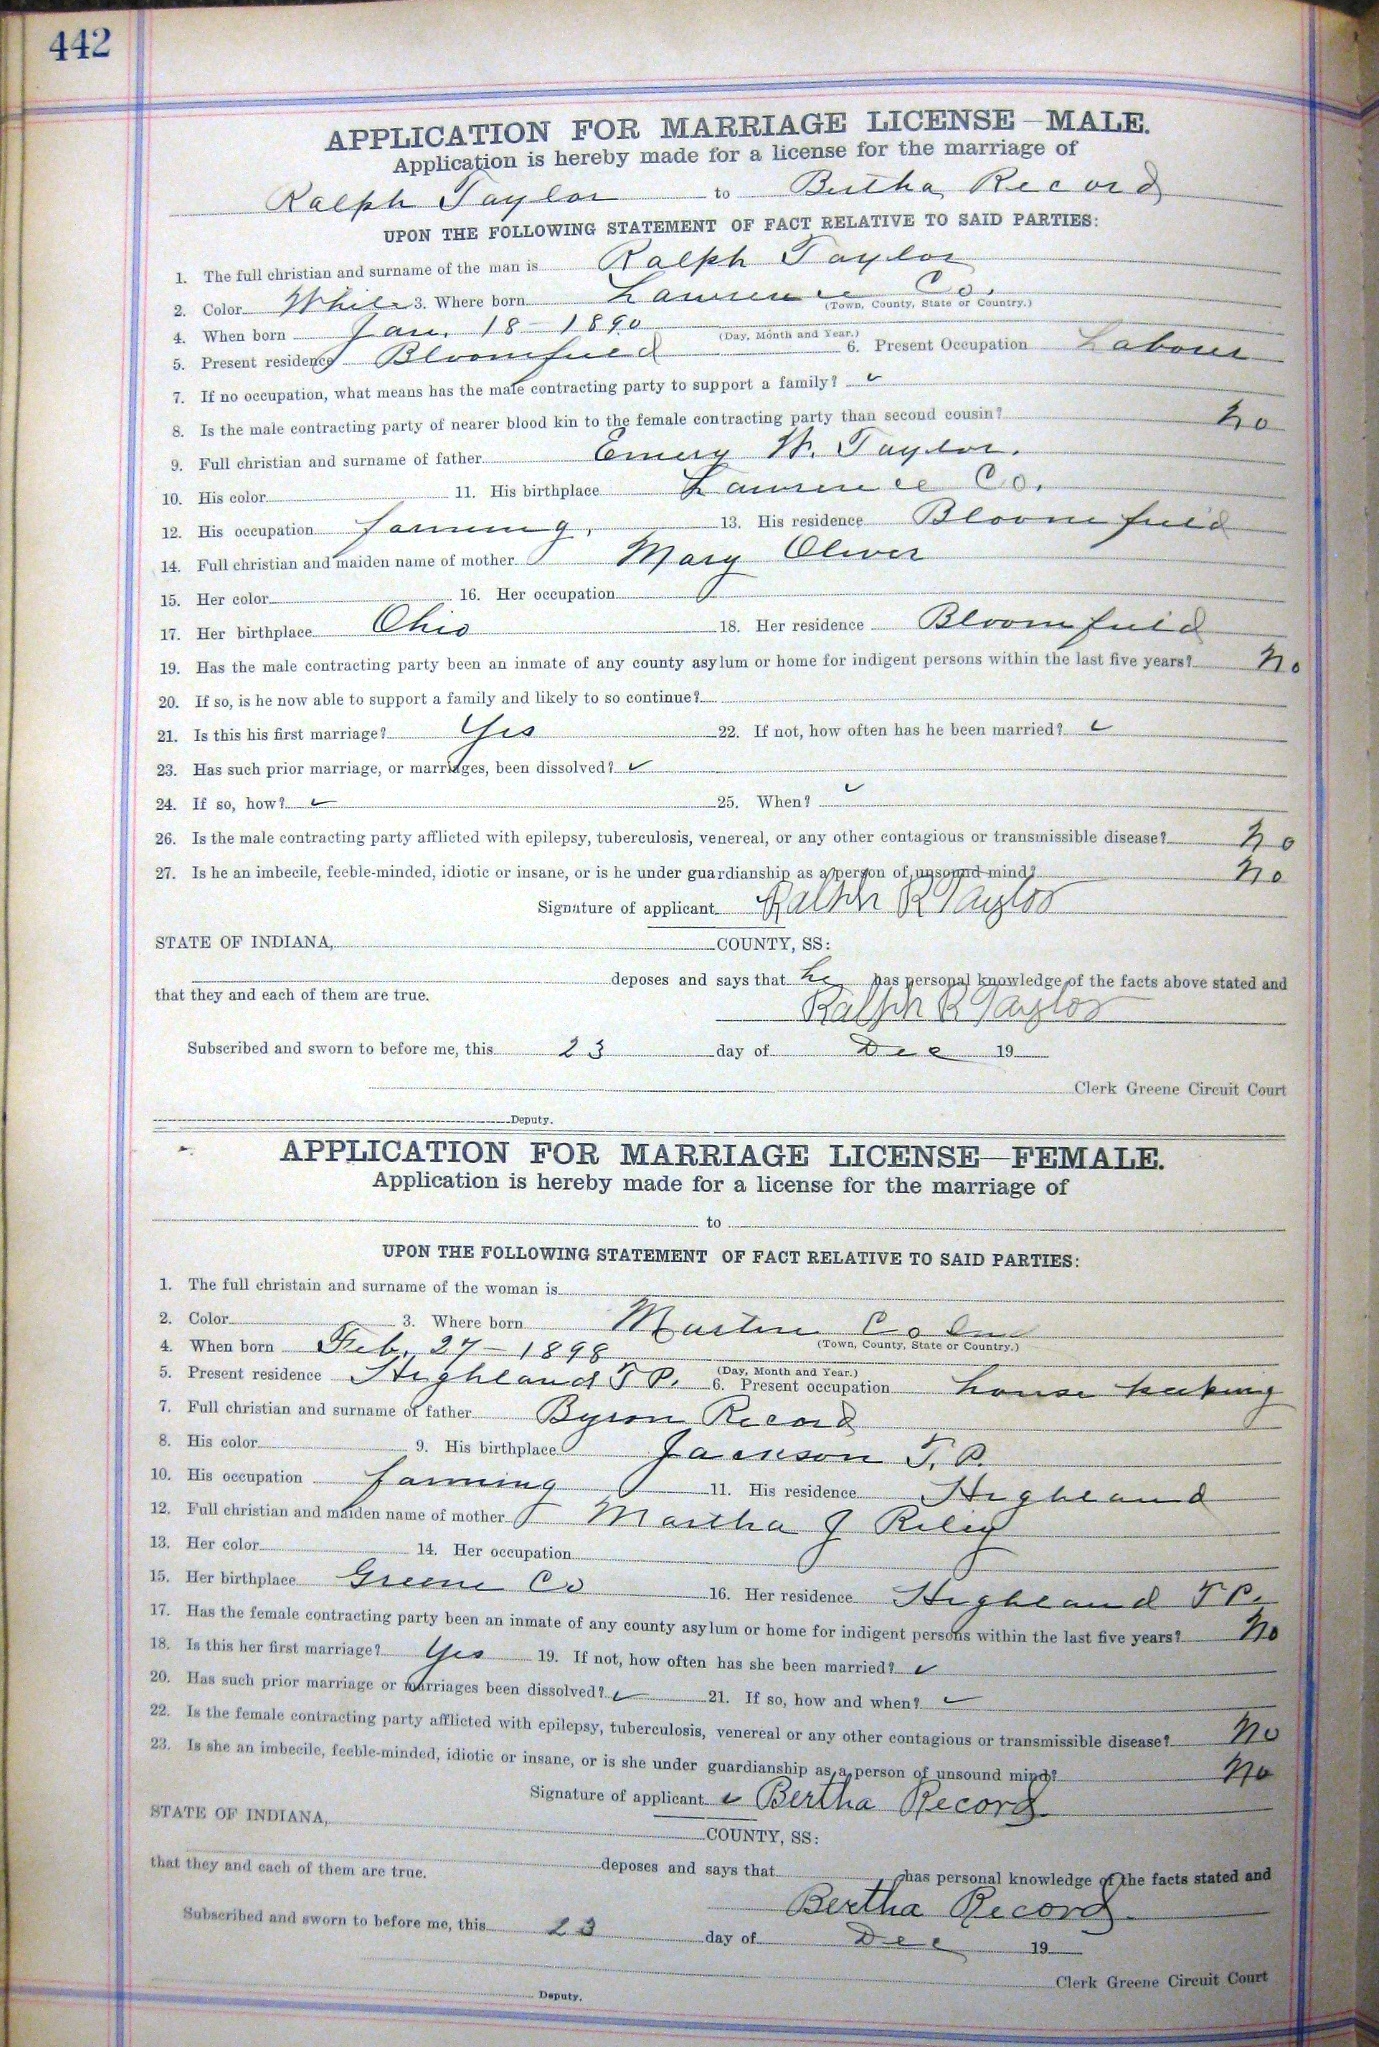 442
APPLICATION FOR MARRIAGE LICENSE—MALE.
Application is hereby made for a license for the marriage of
Ralph Taylor to Bertha Record
UPON THE FOLLOWING STATEMENT OF FACT RELATIVE TO SAID PARTIES:
1. The full christian and surname of the man is Ralph Taylor
2. Color White 3. Where born Lawrence Co.
(Town, County, State or Country.)
4. When born Jan. 18 - 1890
(Day, Month and Year.)
5. Present residence Bloomfield 6. Present Occupation Laborer
7. If no occupation, what means has the male contracting party to support a family? ✓
8. Is the male contracting party of nearer blood kin to the female contracting party than second cousin? no
9. Full christian and surname of father Emery W. Taylor.
10. His color 11. His birthplace Lawrence Co.
12. His occupation farming, 13. His residence Bloomfield
14. Full christian and maiden name of mother Mary Oliver
15. Her color 16. Her occupation
17. Her birthplace Ohio 18. Her residence Bloomfield
19. Has the male contracting party been an inmate of any county asylum or home for indigent persons within the last five years? no
20. If so, is he now able to support a family and likely to so continue?
21. Is this his first marriage? Yes 22. If not, how often has he been married? ✓
23. Has such prior marriage, or marriages, been dissolved? ✓
24. If so, how? ✓ 25. When? ✓
26. Is the male contracting party afflicted with epilepsy, tuberculosis, venereal, or any other contagious or transmissible disease? no
27. Is he an imbecile, feeble-minded, idiotic or insane, or is he under guardianship as a person of unsound mind? no
Signature of applicant Ralph R Taylor
STATE OF INDIANA, COUNTY, SS:
deposes and says that he has personal knowledge of the facts above stated and
that they and each of them are true.
Ralph R Taylor
Subscribed and sworn to before me, this 23 day of Dec 19
Clerk Greene Circuit Court
Deputy.
APPLICATION FOR MARRIAGE LICENSE—FEMALE.
Application is hereby made for a license for the marriage of
to
UPON THE FOLLOWING STATEMENT OF FACT RELATIVE TO SAID PARTIES:
1. The full christain and surname of the woman is
2. Color 3. Where born Martin Co Ind
(Town, County, State or Country.)
4. When born Feb. 27 - 1898
(Day, Month and Year.)
5. Present residence Highland T P. 6. Present occupation house keeking
7. Full christian and surname of father Byron Record
8. His color 9. His birthplace Jackson T. P.
10. His occupation farming 11. His residence Highland
12. Full christian and maiden name of mother Martha J Riley
13. Her color 14. Her occupation
15. Her birthplace Greene Co 16. Her residence Highland T P.
17. Has the female contracting party been an inmate of any county asylum or home for indigent persons within the last five years? No
18. Is this her first marriage? Yes 19. If not, how often has she been married? ✓
20. Has such prior marriage or marriages been dissolved? ✓ 21. If so, how and when? ✓
22. Is the female contracting party afflicted with epilepsy, tuberculosis, venereal or any other contagious or transmissible disease? No
23. Is she an imbecile, feeble-minded, idiotic or insane, or is she under guardianship as a person of unsound mind? No
Signature of applicant ✓ Bertha Record
STATE OF INDIANA, COUNTY, SS:
deposes and says that has personal knowledge of the facts stated and
that they and each of them are true.
Bertha Record
Subscribed and sworn to before me, this 23 day of Dec 19
Clerk Greene Circuit Court
Deputy.